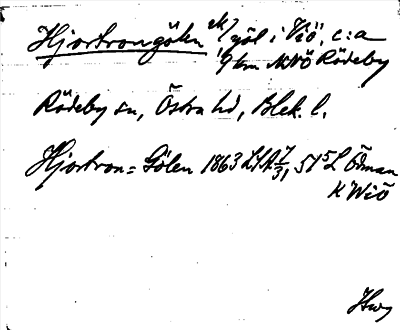 Hjortrongölen sk? göl i Viö, c:a
1/2 km NNÖ Rödeby
Rödeby sn, Östra hd, Blek. l.
Hjortron=Gölen 1863 LSA 7/31, 515 L Öman
K Wiö